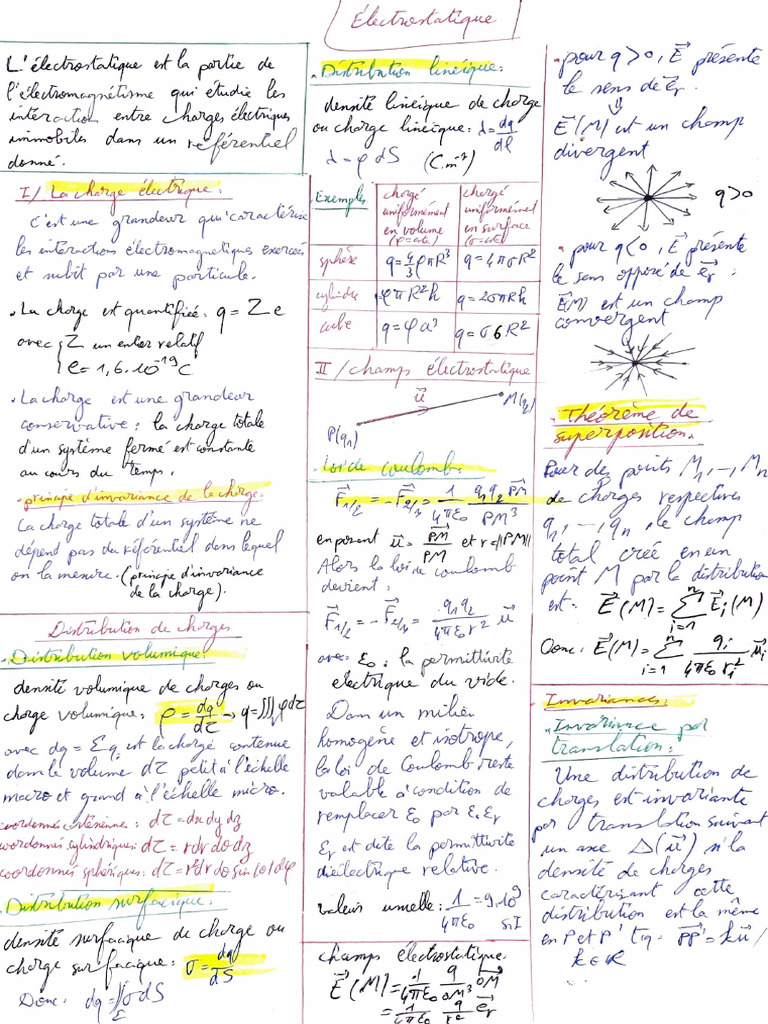 Électrostatique
L'électrostatique est la partie de
l'électromagnétisme qui étudie les
interaction entre charges électriques
immobiles dans un référentiel
donné.
I/ La charge électrique:
C'est une grandeur qui caractérise
les interactions électromagnetiques exercées
et subit par une particule.
. La charge est quantifiée: q = Z e
avec { Z un entier relatif
e = 1,6.10⁻¹⁹ C
. La charge est une grandeur
conservative: la charge totale
d'un système fermé est constante
au cours du temps.
. principe d'invariance de la charge.
La charge totale d'un système ne
dépend pas du référentiel dans lequel
on la mesure. (principe d'invariance
de la charge).
Distribution de charges
. Distribution volumique
densité volumique de charges ou
charge volumique: ρ = dq/dτ → q = ∭ρdτ
avec dq = Σqᵢ est la charge contenue
dans le volume dτ petit à l'échelle
macro et grand à l'échelle micro.
coordonnée cartésienne: dτ = dx dy dz
coordonnés cylindrique: dτ = rdr dθ dz
coordonnés sphérique: dτ = r²dr dθ sin(θ) dφ
. Distribution surfacique:
densité surfacique de charge ou
charge surfacique: σ = dq/dS
Donc: dq = ∬σdS
Σ
. Distribution linéique:
densité linéique de charge
ou charge linéique: λ = dq/dℓ
λ = ρ dS (C.m⁻¹)
Exemples | chargé uniformément en volume (ρ=cste) | chargé uniformément en surface (σ=cste)
sphère | q = 4/3 ρπR³ | q = 4πσR²
cylindre | ρπR²h | q = 2σπRh
cube | q = ρa³ | q = σ6R²
II/ champs électrostatique
P(q₁) u⃗ M(q₂)
. Loi de coulomb:
F⃗₁/₂ = -F⃗₂/₁ = 1/4πε₀ q₁q₂ PM⃗/PM³
en posant u⃗ = PM⃗/PM et r=||PM||
Alors la loi de coulomb
devient:
F⃗₁/₂ = -F⃗₂/₁ = q₁q₂/4πε₀r² u⃗
avec ε₀: la permittivité
électrique du vide.
Dans un milieu
homogène et isotrope,
la loi de Coulomb reste
valable à condition de
remplacer ε₀ par ε₀εᵣ
εᵣ est dite la permittivité
diélectrique relative.
valeur usuelle: 1/4πε₀ = 9.10⁹ S.I
champs électrostatique:
E⃗(M) = 1/4πε₀ q/OM³ OM⃗
= 1/4πε₀ q/r² e⃗ᵣ
. pour q>0, E⃗ présente
le sens de e⃗ᵣ
⇓
E⃗(M) est un champ
divergent
q>0
. pour q<0, E⃗ présente
le sens opposé de e⃗ᵣ:
E⃗(M) est un champ
convergent
. Théorème de
superposition.
Pour des points M₁,-,Mₙ
de charges respectives
q₁,-,qₙ, le champ
total créé en un
point M par la distribution
est: E⃗(M) = Σⁿᵢ₌₁ E⃗ᵢ(M)
Donc: E⃗(M) = Σⁿᵢ₌₁ qᵢ/4πε₀rᵢ² u⃗ᵢ
Invariances:
. Invariance par
translation:
Une distribution de
charges est invariante
par translation suivant
un axe Δ(u⃗) si la
densité de charges
caractérisant cette
distribution est la même
en P et P' tq- PP'⃗ = ku⃗/
k∈ℝ